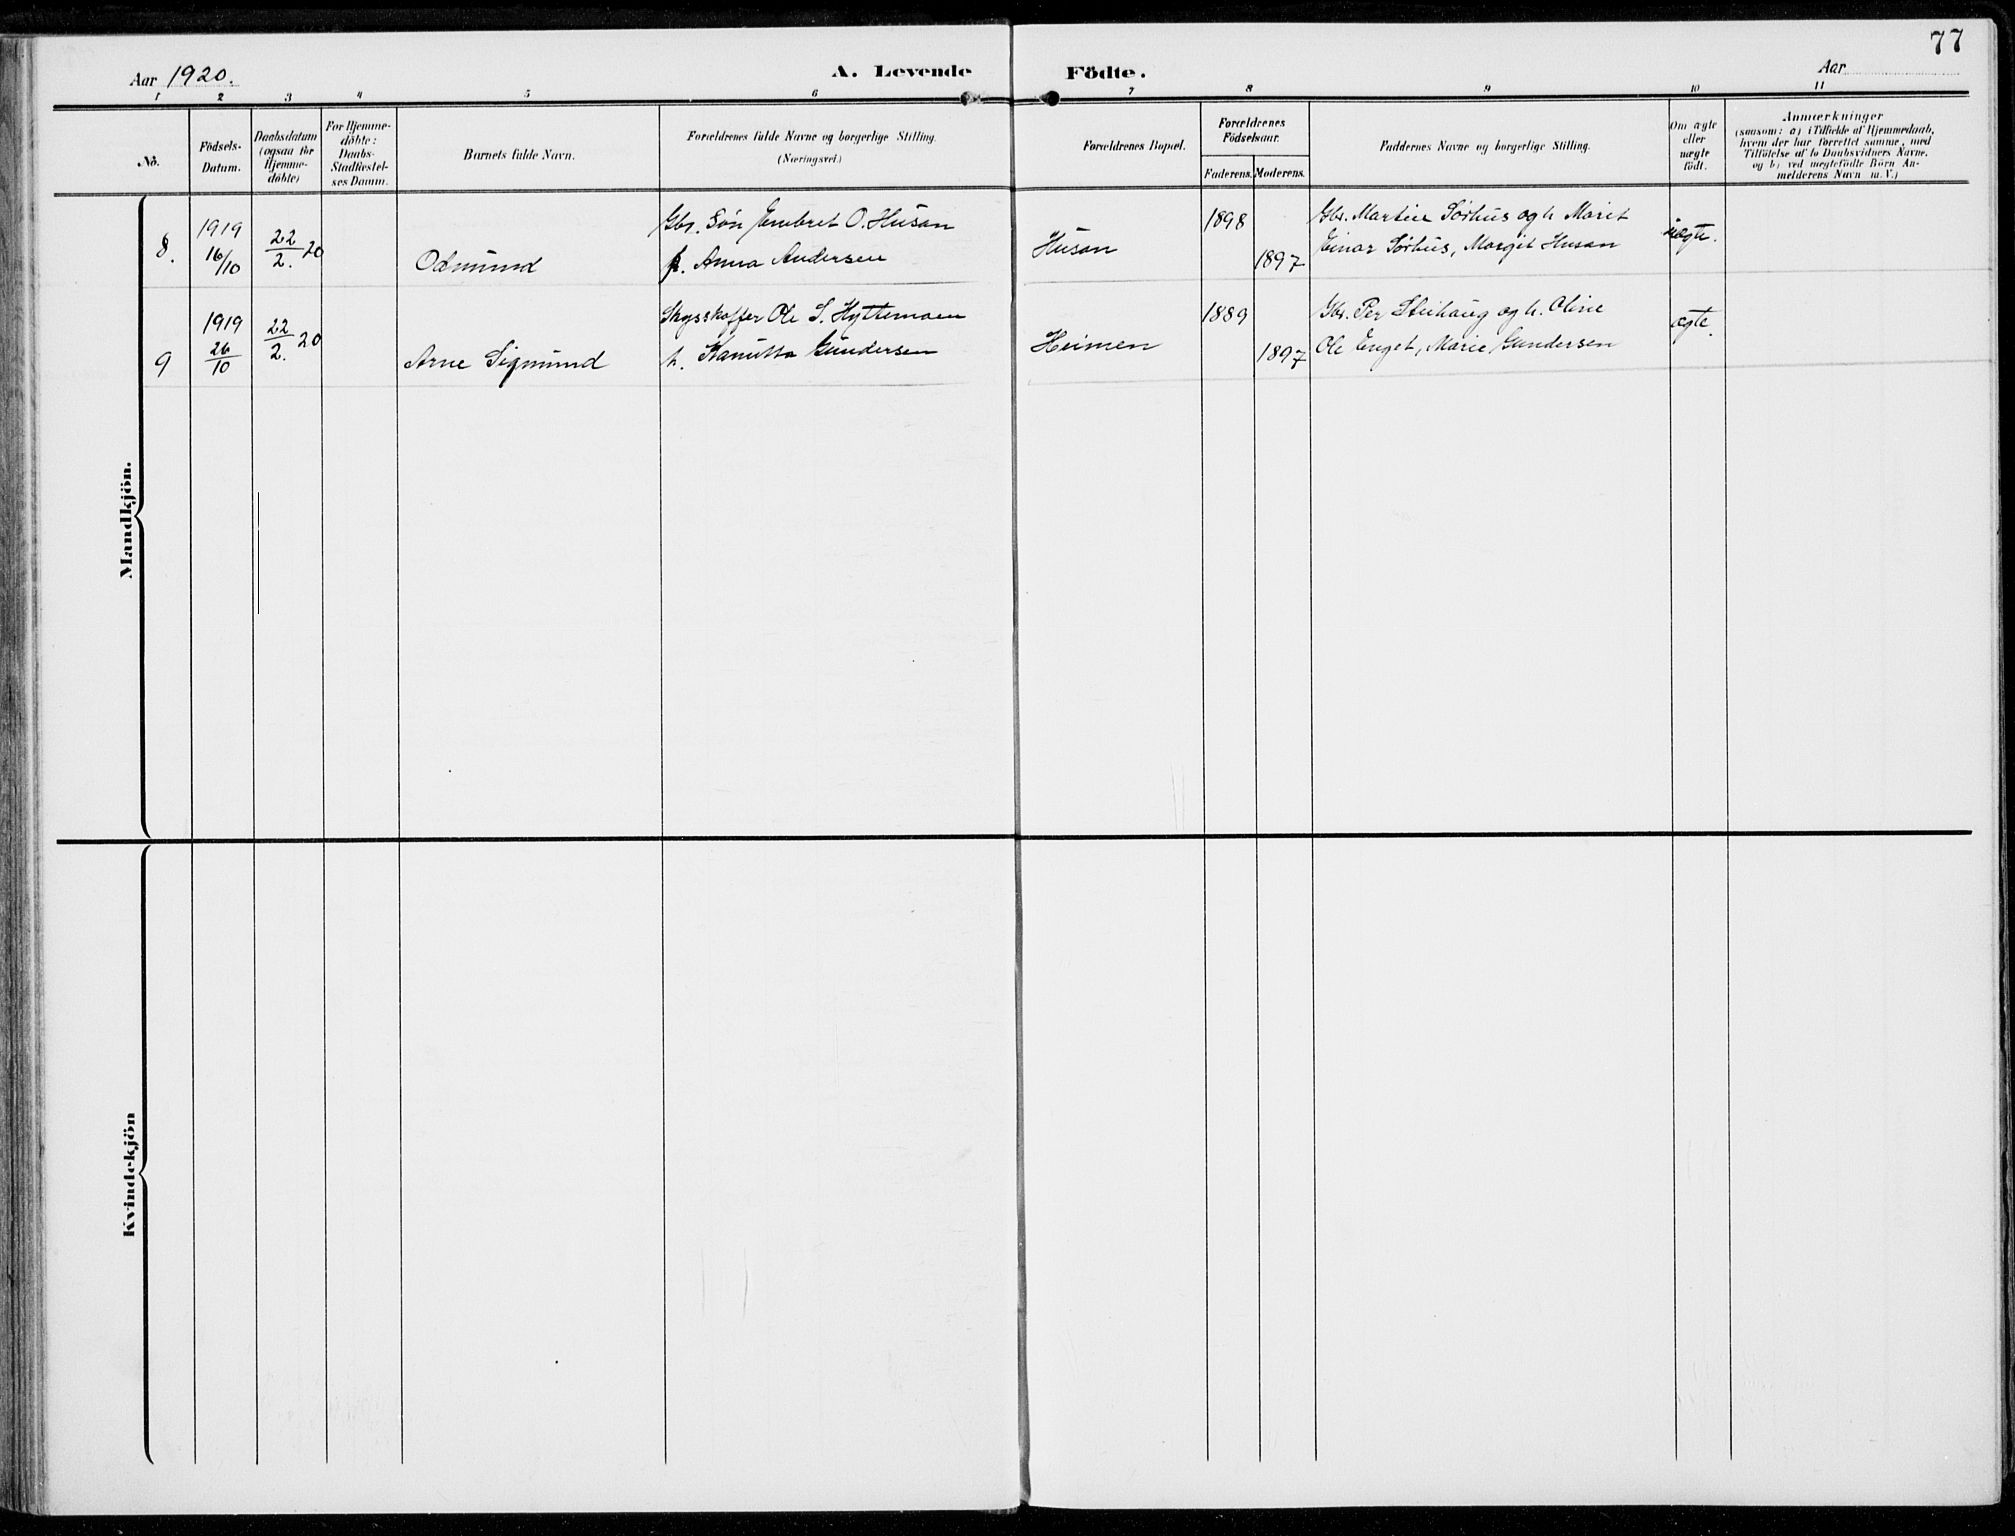 77
Aar 1920. A. Levende Födte. Aar
1 2 3 4 5 6 7 8 9 10 11
No.
Födsels-
Datum.
Daabsdatum
(ogsaa för
Hjemme-
döbte)
For Hjemme-
döbte:
Daabs-
Stadfæstel-
ses Datum.
Barnets fulde Navn.
Forældrenes fulde Navne og borgerlige Stilling.
(Næringsvei.)
Forældrenes Bopæl.
Forældrenes
Födselsaar.
Faderens. Moderens.
Faddernes Navne og borgerlige Stilling.
Om ægte
eller
uægte
födt.
Anmærkninger
(saasom: a) i Tilfælde af Hjemmedaab,
hvem der har forrettet samme, med
Tilföielse af to Daabsvidners Navne,
og b) ved uægtefödte Börn An-
melderens Navn m. V.)
Mandkjön.
8. 1919 16/10 22/2. 20 Odmund
Gbr. Søn Embret O. Husan
p. Anna Andersen
Husan 1898 1897
Gbr. Martin Sørhus og h. Marit
Einar Sørhus, Margit Husan
uægte.
9 1919 26/10 22/2. 20 Arne Sigmund
Skysskaffer Ole S. Hyttemoen
h. Kanutta Gundersen
Heimen 1889 1897
Gbr. Per Steihaug og h. Oline
Ole Enget, Marie Gundersen
ægte.
Kvindekjön